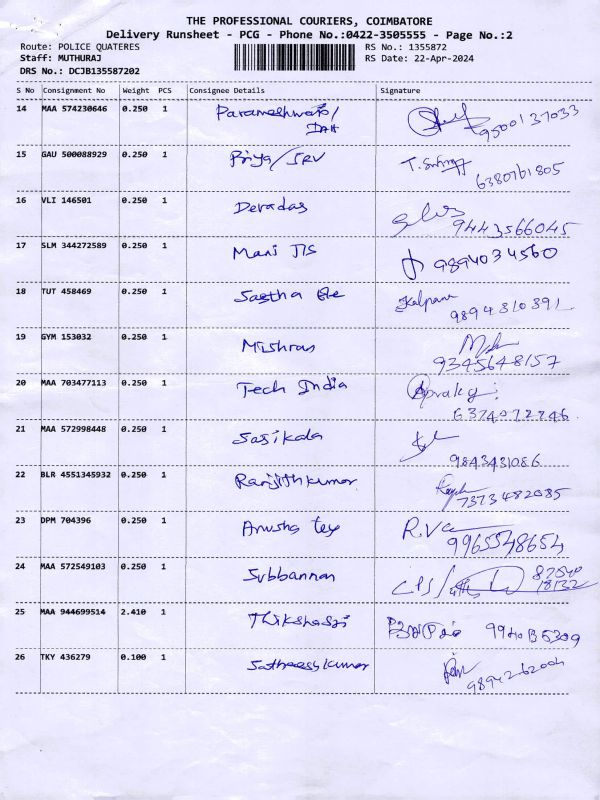 THE PROFESSIONAL COURIERS, COIMBATORE
Delivery Runsheet - PCG - Phone No.:0422-3505555 - Page No.:2
Route: POLICE QUATERES RS No.: 1355872
Staff: MUTHURAJ RS Date: 22-Apr-2024
DRS No.: DCJB135587202
S No Consignment No Weight PCS Consignee Details Signature
14 MAA 574230646 0.250 1 Parameshwari/ 9500137033
IAH
15 GAU 500088929 0.250 1 Priya/SRV T. 6380761805
16 VLI 146501 0.250 1 Devadas 9443566045
17 SLM 344272589 0.250 1 Mani JJS 9894034560
18 TUT 458469 0.250 1 Sastha Kalpana
9894310391
19 GYM 153032 0.250 1 Mishras
9345648157
20 MAA 703477113 0.250 1 Tech India
6374072246
21 MAA 572998448 0.250 1 Sasikala
9843431086
22 BLR 4551345932 0.250 1 Ranjithkumar
7373482085
23 DPM 704396 0.250 1 Anusha tex R.V
9965548654
24 MAA 572549103 0.250 1 Subbannan 87540
18132
25 MAA 944699514 2.410 1 Thikshasri
26 TKY 436279 0.100 1 Satheeshkumar
9894262004